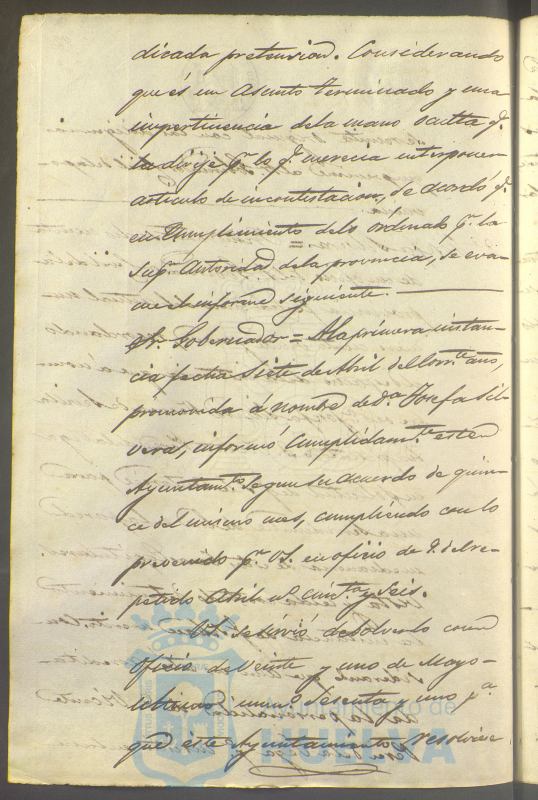 dicada pretension. Considerando
que es un asunto terminado y una
impertinencia de la mano oculta q.e
la dirije p.r lo q.e merecia interponer
articulo de incontestacion, se acordó q.e
en cumplimiento de lo ordenado p.r la
Sup.r Autoridad de la provincia, se eva-
cue el informe siguiente.
Sr. Gobernador = A la primera instan-
cia fecha siete de Abril del corr.te año,
promovida á nombre de d.a Josefa Sil-
vera, informó cumplidam.te este
Ayuntam.to segun su acuerdo de quin-
ce del mismo mes, cumpliendo con lo
prevenido p.r VS. en oficio de 9. del re-
petido Abril n.l y seis.
VS. se sirvió debolverlo con
oficio de veinte y uno de Mayo
numº sesenta y uno p.a
que este Ayuntamiento resolviese
Ayuntamiento de
HUELVA